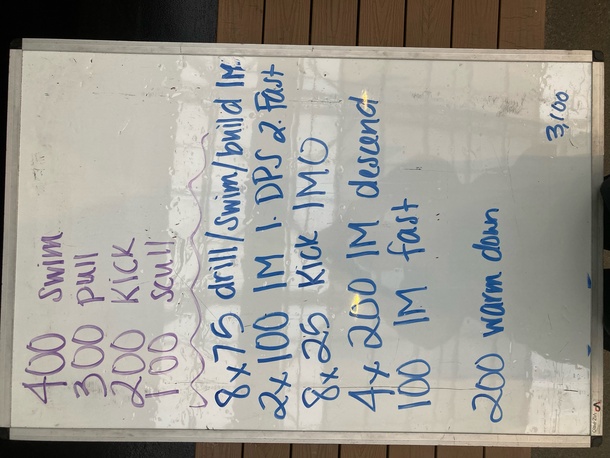 400 swim
300 pull
200 kick
100 scull
8x75 drill/swim/build IM
2x100 IM 1. DPS 2. Fast
8x25 kick IMO
4x200 IM descend
100 IM fast
200 warm down
3,100